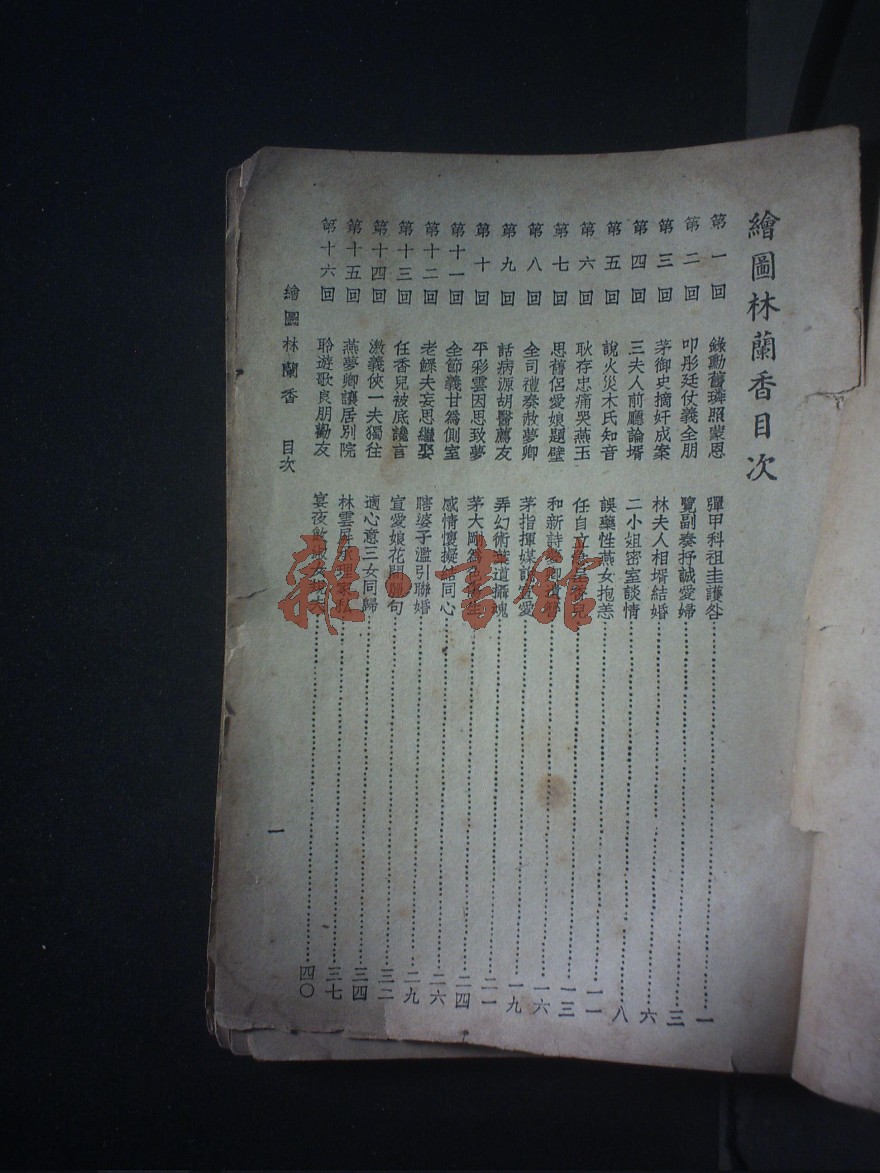 繪圖林蘭香目次
第一回 錄勳舊璘照蒙恩 彈甲科祖圭護咎 一
第二回 叩彤廷仗義全朋 覽副奏抒誠愛婦 三
第三回 茅御史摘奸成案 林夫人相壻結婚 六
第四回 三夫人前廳論壻 二小姐密室談情 八
第五回 說火災木氏知音 誤藥性燕女抱恙 一一
第六回 耿存忠痛哭燕玉 任自立 香兒 一三
第七回 思舊侶愛娘題壁 和新詩夢卿 一六
第八回 全司禮奏赦夢卿 茅指揮媒說宣愛 一九
第九回 話病源胡醫薦友 弄幻術葉道攝魂 二一
第十回 平彩雲因思致夢 茅大剛爲色 生 二四
第十一回 全節義甘爲側室 感情懷擬結同心 二六
第十二回 老鰥夫妄思繼娶 瞎婆子濫引聯婚 二九
第十三回 任香兒被底讒言 宣愛娘花間麗句 三二
第十四回 激義俠一夫獨往 適心意三女同歸 三四
第十五回 燕夢卿讓居別院 林雲屏承理家私 三七
第十六回 聆遊歌良朋勸友 宴夜飲淑女規夫 四〇
繪圖林蘭香 目次
一
雜·書館